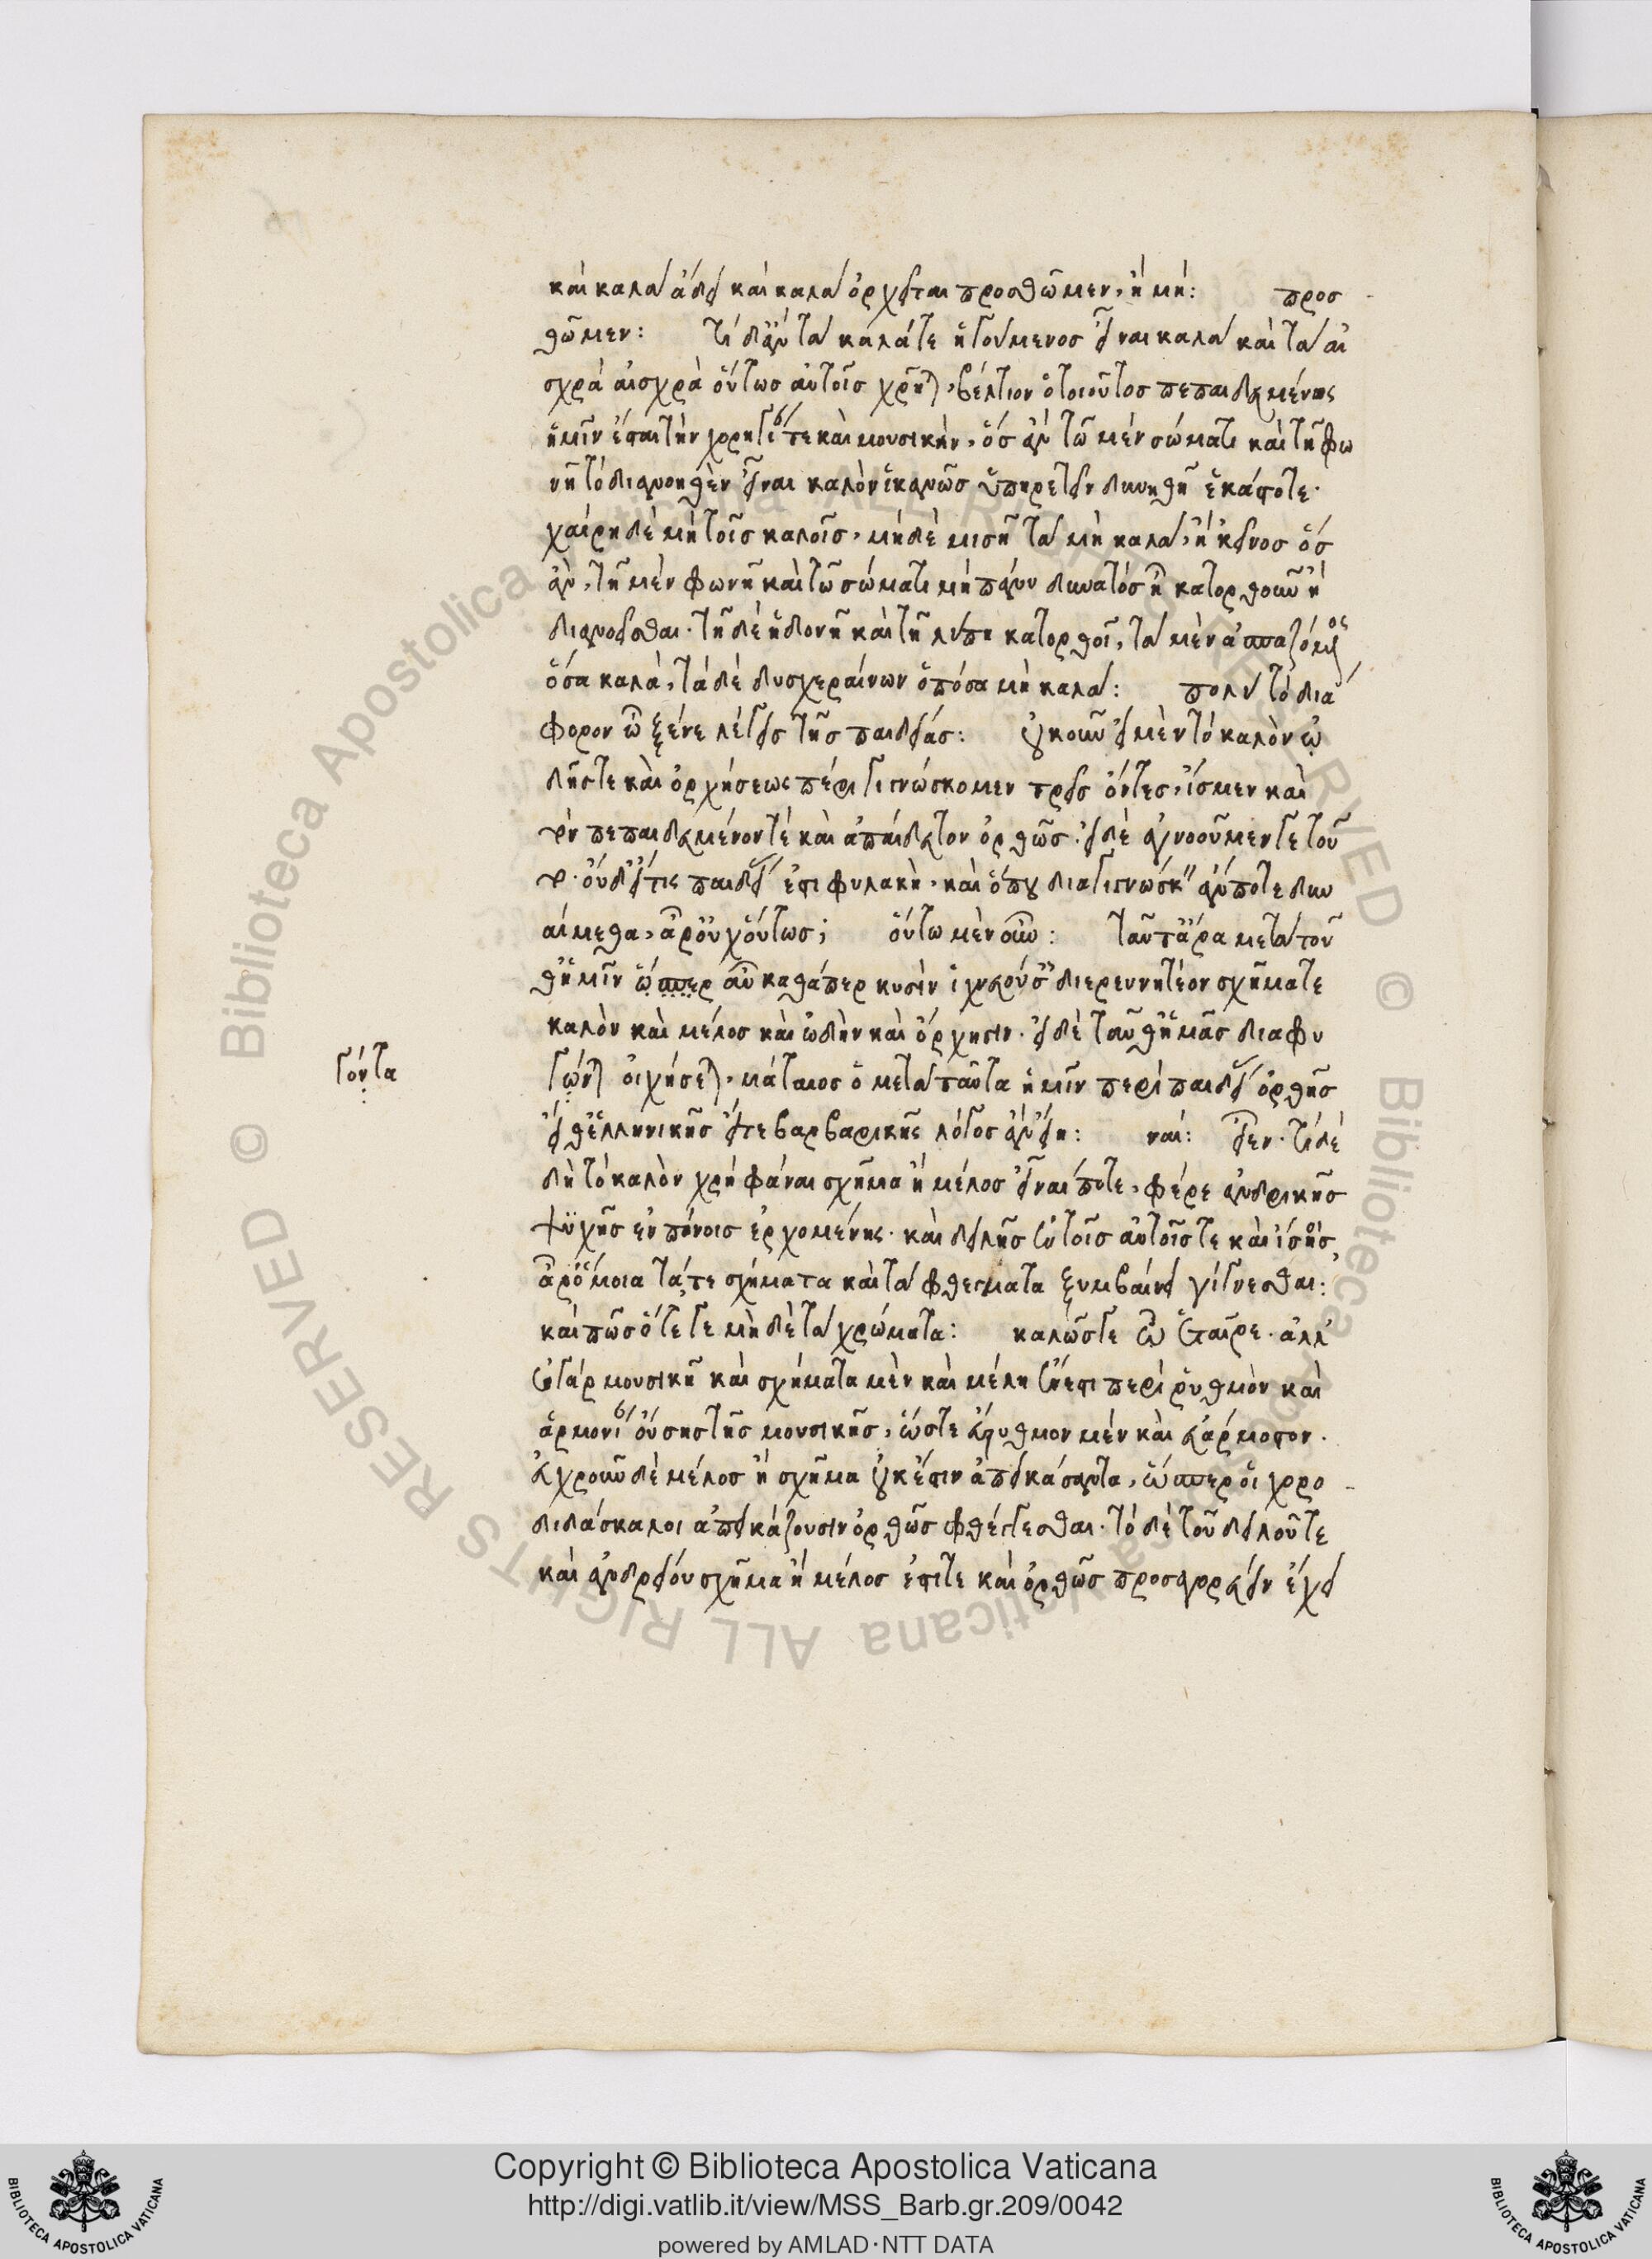 καὶ καλὰ ἄδει καὶ καλὰ ὀρχεῖται προσθῶμεν, ἢ μή: προσ
θῶμεν: τί δ' ἂν τὰ καλά τε ἡγούμενος εἶναι καλὰ καὶ τὰ αἰ
σχρὰ αἰσχρὰ οὕτως αὐτοῖς χρῆται, βέλτιον ὁ τοιοῦτος πεπαιδευμένος
ἡμῖν ἔσται τὴν χορείαν τε καὶ μουσικὴν, ὃς ἂν τῶ μὲν σώματι καὶ τῆ φω
νῆ τὸ διανοηθὲν εἶναι καλὸν ἱκανῶς ὑπηρετεῖν δυνηθῆ ἑκάστοτε.
χαίρη δὲ μὴ τοῖς καλοῖς, μηδὲ μισῆ τὰ μὴ καλὰ, ἢ 'κεῖνος ὃς
ἂν, τῆ μὲν φωνῆ καὶ τῶ σώματι μὴ πάνυ δυνατὸς ἦ κατορθοῦν ἢ
διανοεῖσθαι. τῆ δὲ ἡδονῆ καὶ τῆ λύπη κατορθοῖ, τὰ μὲν ἀσπαζόμενος
ὅσα καλὰ, τὰ δὲ δυσχεραίνων ὁπόσα μὴ καλά: πολὺ τὸ διά
φορον ὦ ξένε λέγεις τῆς παιδείας: οὐκοῦν εἰ μὲν τὸ καλὸν ᾠ
δῆς τε καὶ ὀρχήσεως πέρι γιγνώσκομεν τρεῖς ὄντες, ἴσμεν καὶ
τὸν πεπαιδευμένον τὲ καὶ ἀπαίδευτον ὀρθῶς. εἰ δὲ ἀγνοοῦμεν γε τοῦ
το. οὐδ' εἴ τις παιδείας ἐστὶ φυλακὴ, καὶ ὅπου διαγιγνώσκειν ἄν ποτε δυν
αίμεθα, ἆρ' οὐχ οὕτως; οὕτω μὲν οὖν: ταῦτ' ἄρα μετὰ τοῦ
θ' ἡμῖν ὥσπερ αὖ καθάπερ κυσὶν ἰχνευούσαις διερευνητέον σχῆμά τε
καλὸν καὶ μέλος καὶ ᾠδὴν καὶ ὄρχησιν. εἰ δὲ ταῦθ' ἡμᾶς διαφυ
γόντα
γὼν οἰχήσεται, μάταιος ὁ μετὰ ταῦτα ἡμῖν περὶ παιδείας ὀρθῆς
εἴθ' ἑλληνικῆς εἴτε βαρβαρικῆς λόγος ἂν εἴη: ναί: εἶεν. τί δὲ
δὴ τὸ καλὸν χρὴ φάναι σχῆμα ἢ μέλος εἶναί ποτε, φέρε ἀνδρικῆς
ψυχῆς ἐν πόνοις ἐρχομένης. καὶ δειλῆς ἐν τοῖς αὐτοῖς τε καὶ ἴσοις,
ἆρ' ὅμοια τά τε σχήματα καὶ τὰ φθέγματα ξυμβαίνει γίγνεσθαι:
καὶ πῶς ὅτε γε μηδὲ τὰ χρώματα: καλῶς γε ὦ ἑταῖρε. ἀλλ'
ἐν γὰρ μουσικῆ καὶ σχήματα μὲν καὶ μέλη ἔνεστι περὶ ῥυθμὸν καὶ
ἁρμονίαν οὔσης τῆς μουσικῆς, ὥστε εὔρυθμον μὲν καὶ εὐάρμοστον.
εὔχρουν δὲ μέλος ἢ σχῆμα οὐκ ἔστιν ἀπεικάσαντα, ὥσπερ οἱ χορο
διδάσκαλοι ἀπεικάζουσιν ὀρθῶς φθέγγεσθαι. τὸ δὲ τοῦ δειλοῦ τε
καὶ ἀνδρείου σχῆμα ἢ μέλος ἔστι τε καὶ ὀρθῶς προσαγορεύειν ἔχει
Copyright © Biblioteca Apostolica Vaticana
http://digi.vatlib.it/view/MSS_Barb.gr.209/0042
powered by AMLAD·NTT DATA